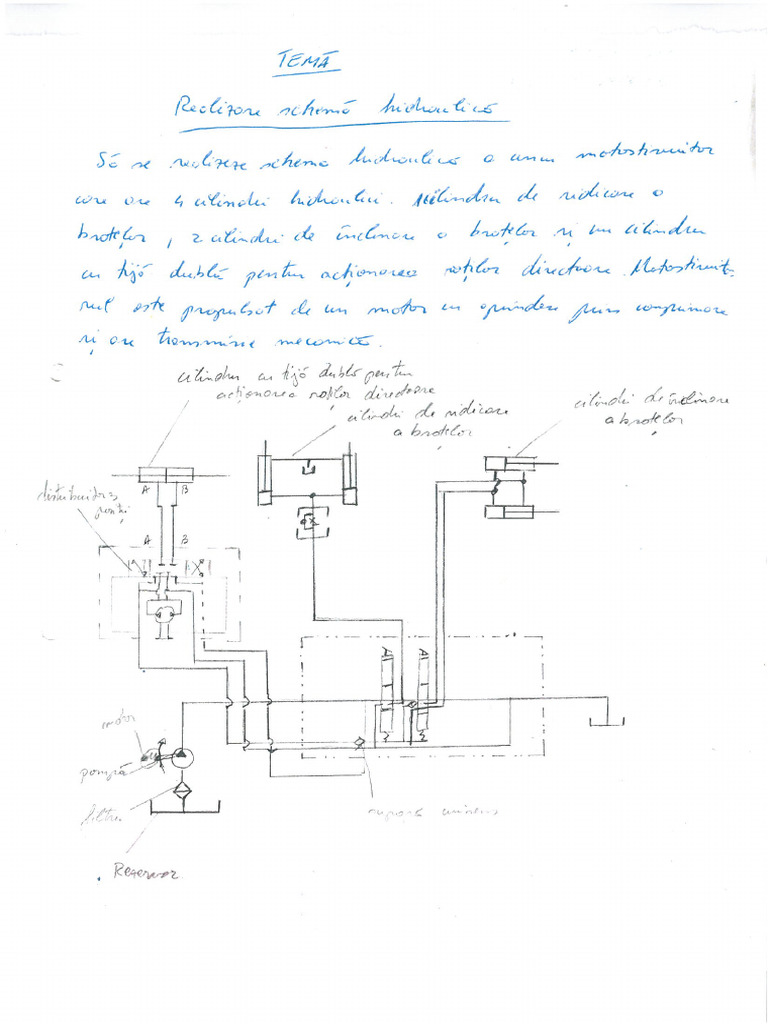 TEMĂ
Realizare schemă hidraulică
Să se realizeze schema hidraulică a unui motostivuitor
care are 4 cilindri hidraulici. cilindru de ridicare a
brațelor, 2 cilindri de înclinare a brațelor și un cilindru
cu tijă dublă pentru acționarea roților directoare. Motostivuito-
rul este propulsat de un motor cu aprindere prin comprimare
și are transmisie mecanică.
cilindru cu tijă dublă pentru
acționarea roților directoare
cilindri de ridicare
a brațelor
cilindri de înclinare
a brațelor
A B
A B
M
motor
pompă
filtru
Rezervor